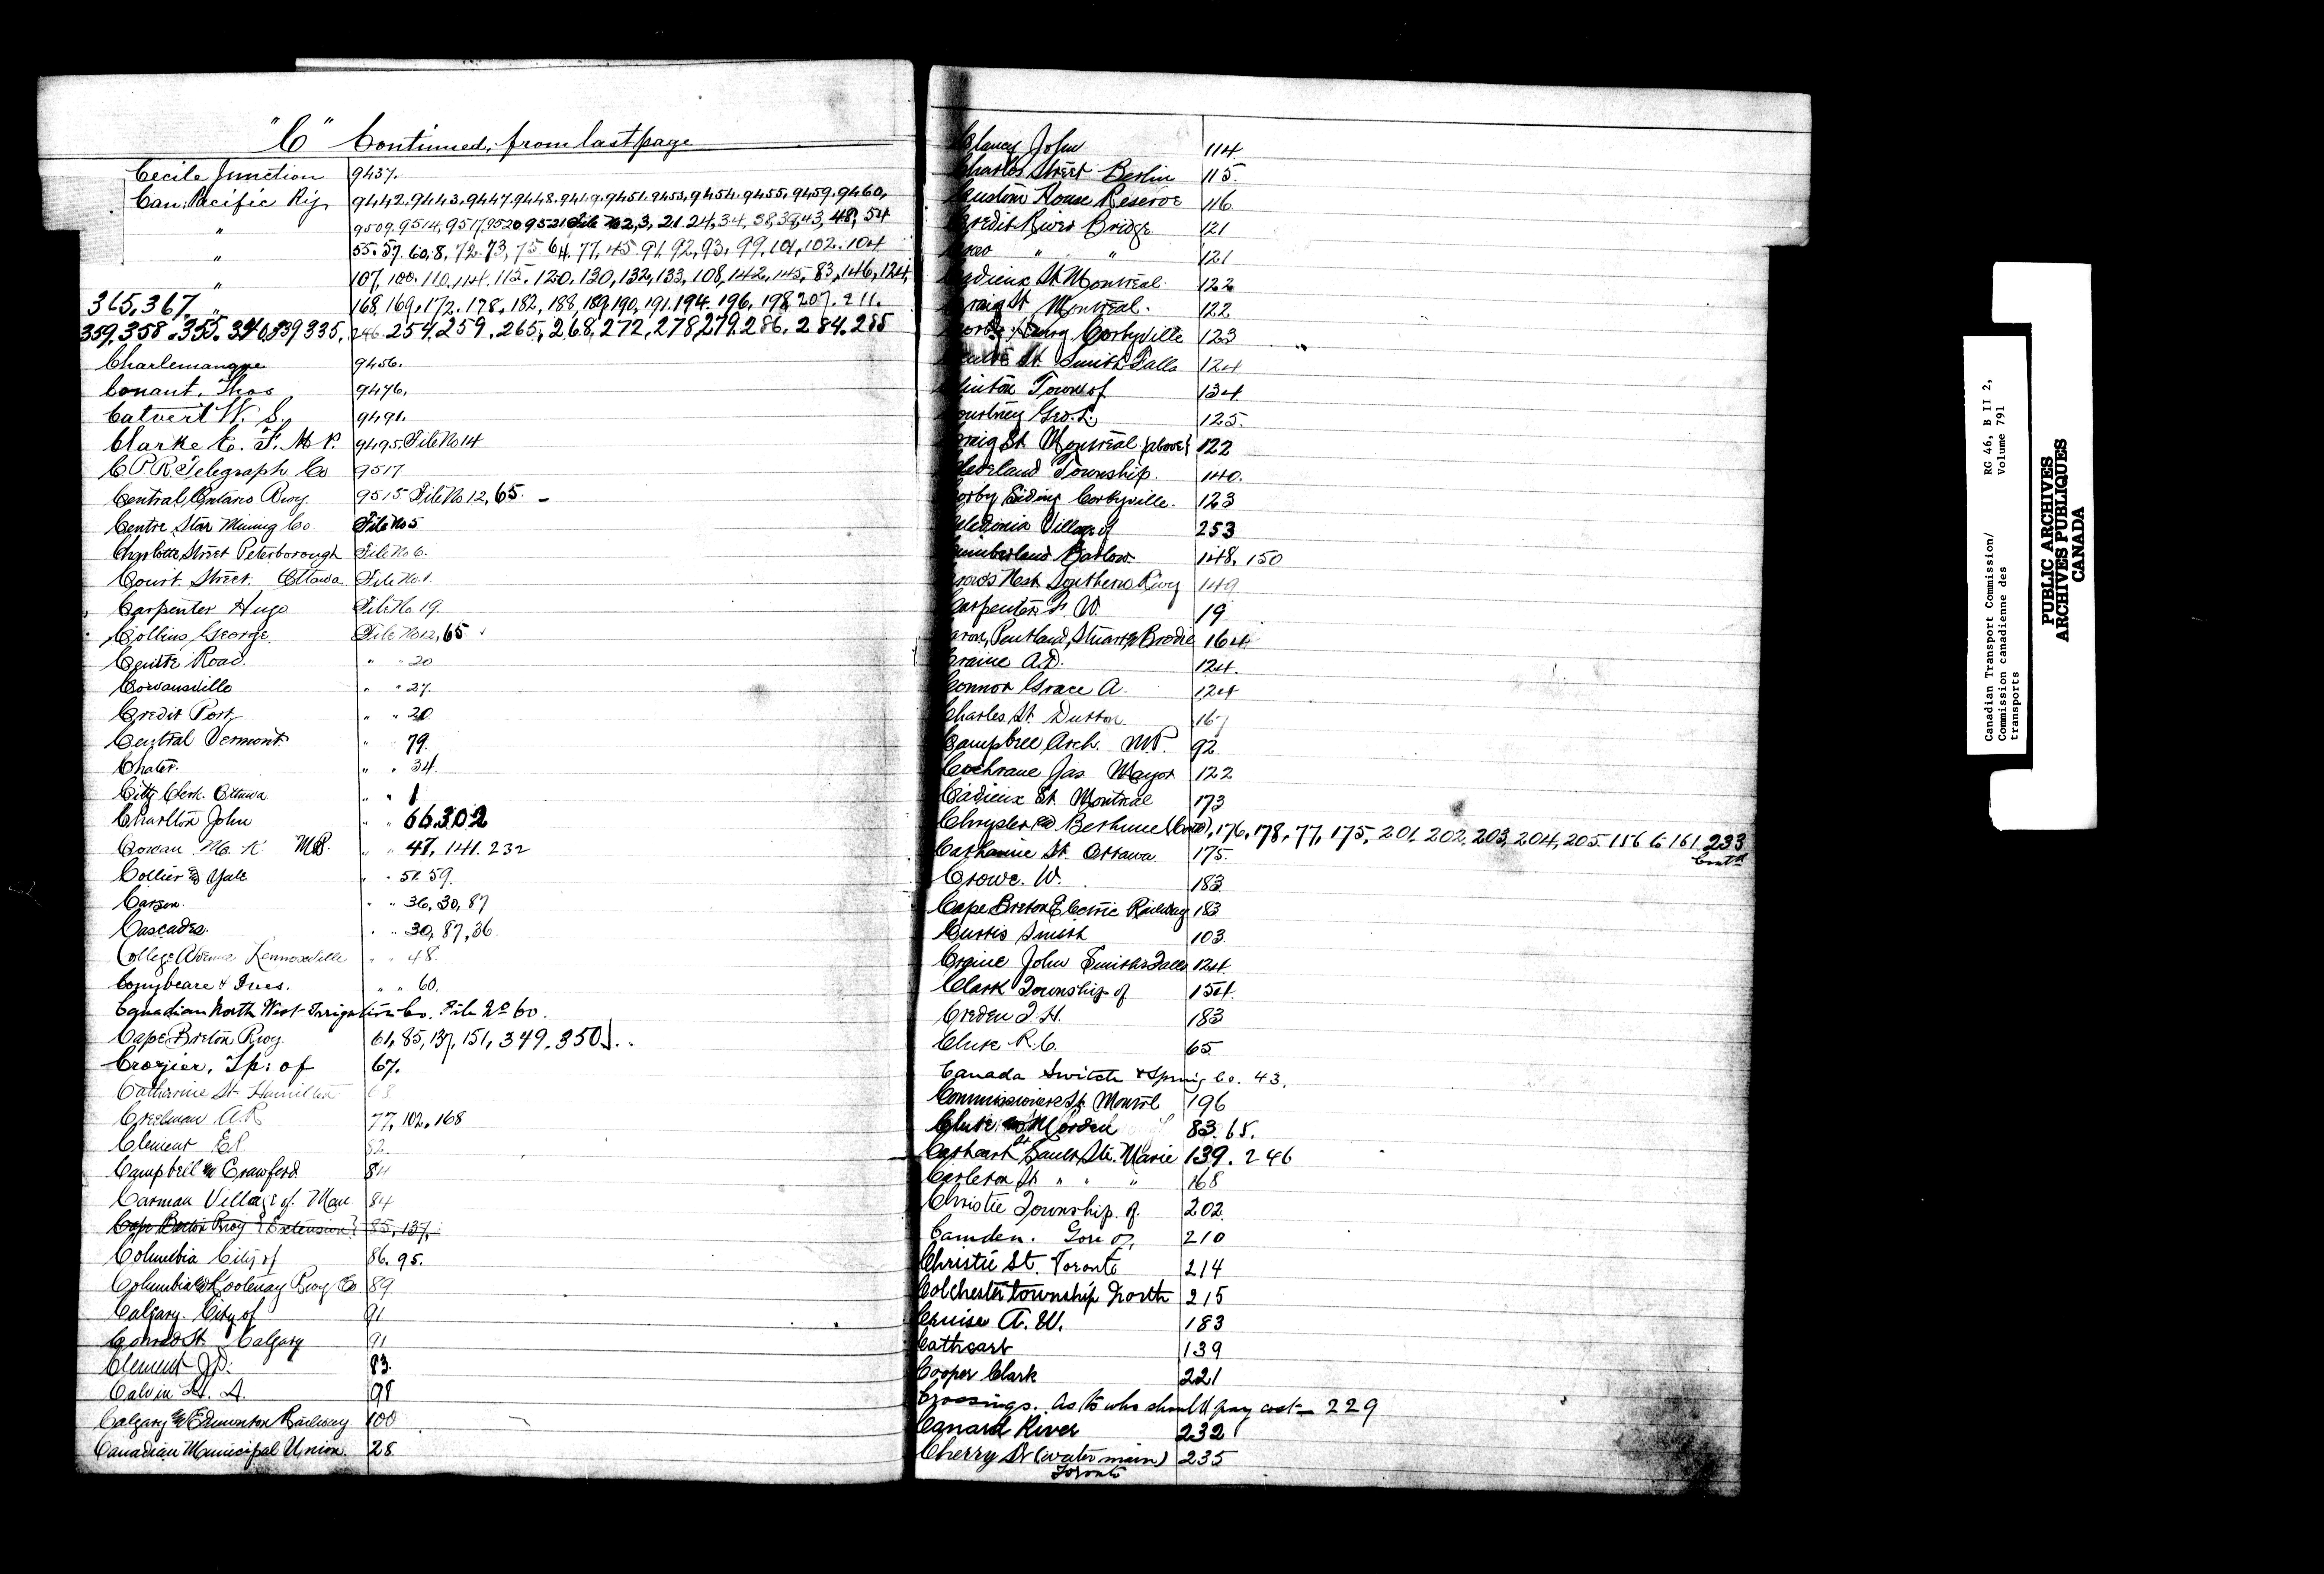 "C" Continued, from last page
Cecile Junction 9437.
Can. Pacific Ry. 9442, 9443, 9447, 9448, 9449, 9451, 9453, 9454, 9455, 9459, 9460,
" 9509, 9514, 9517, 9520 9521 File No 2, 3, 21. 24, 34, 38, 39, 43, 48, 54
" 55. 57. 60, 8, 72. 73, 75 64. 77, 45 91. 92, 93, 99, 101, 102. 104
" 107, 100. 110, 114. 115. 120, 130, 132, 133, 108, 142, 145, 83, 146, 124,
365, 367, " 168, 169, 172. 178, 182, 188, 189, 190, 191. 194. 196, 198 207. 211.
359, 358. 355. 340, 339 335, 246. 254, 259. 265, 268, 272, 278, 279. 286. 284. 285
Charlemangne 9456.
Conant, Thos 9476.
Calvert W. S. 9491.
Clarke E. F. M.P. 9495. File No 14
C.P.R. Telegraph Co 9517
Central Ontario Rwy. 9515 File No 12, 65. -
Centre Star Mining Co File No 5
Charlotte Street Peterborough File No 6.
Court Street Ottawa File No. 1
Carpenter Hugo File No. 19.
Collins George. File No 12, 65
Centre Road. " " 20
Cowansville " " 27.
Credit Port " " 20
Central Vermont " " 79.
Chater. " " 34.
City Clerk. Ottawa " " 1
Charlton John " " 66, 302
Cowan M. K. MP. " " 47, 141. 232
Collier & Yale " " 51. 59.
Carson. " " 36, 30, 87
Cascades. " " 30, 87, 36.
College Avenue Lennoxville " " 48.
Conybeare & Ives. " " 60.
Canadian North West Irrigation Co. File No 60.
Cape Breton Rwy. 61, 85, 137, 151, 349. 350
Crozier, Tp: of 67.
Catherine St. Hamilton 68
Creelman A.R. 77, 102, 168
Clement E.P. 82.
Campbell & Crawford. 84
Carman Village of. Man 84
Cape Breton Rwy {Extension} 85, 137,
Columbia City of 86. 95.
Columbia & Kootenay Rwy Co 89
Calgary. City of 91
Conrad St. Calgary 91
Clement J.D. 83.
Calvin H. A. 98
Calgary & Edmonton Railway 100
Canadian Municipal Union 28.
Clancy John 114.
Charles Street Berlin 115.
Custom House Reserve 116
Credit River Bridge 121
" " 121
Cadieux St Montreal. 122
Craig St Montreal. 122
Corby Corbyville 123
Centre St. Smiths Falls 124
Clinton Town of 134
Courtney Geo. L. 125.
Craig St. Montreal {above} 122
Cleveland Township. 140.
Corby Siding Corbyville. 123
Caledonia Village of 253
Cumberland Barlow 148, 150
Crows Nest Southern Rwy 149
Carpenter F. W. 19
Caron, Pentland, Stuart & Brodie 164
Craine A.D. 124.
Connor Grace A. 124
Charles St. Dutton 167
Campbell Arch. M.P. 92
Cochrane Jas Mayor 122
Cadieux St. Montreal 173
Chrysler & Bethune (Cont'd), 176, 178, 77, 175, 201. 202, 203, 204, 205. 156 to 161. 233
Cont'd
Catharine St. Ottawa 175.
Crowe. W. 183
Cape Breton Electric Railway 183
Curtis Smith 103.
Craine John Smiths Falls 124.
Clark Township of 154.
Creden T. H. 183
Clute R.C. 65
Canada Switch & Spring Co. 43.
Commissioners St. Montreal 196
Clute & Morden 83. 65.
Cathcart St Sault Ste. Marie 139. 246
Carleton St. " " " 168
Christie Township of. 202.
Camden. Gore of, 210
Christie St. Toronto 214
Colchester township North 215
Cruise A. W. 183
Cathcart 139
Cooper Clark 221
Crossings. As to who should pay cost - 229
Canard River 232
Cherry St (water main) 235
Toronto
Canadian Transport Commission/ RG 46, B II 2,
Commission canadienne des Volume 791
transports
PUBLIC ARCHIVES
ARCHIVES PUBLIQUES
CANADA